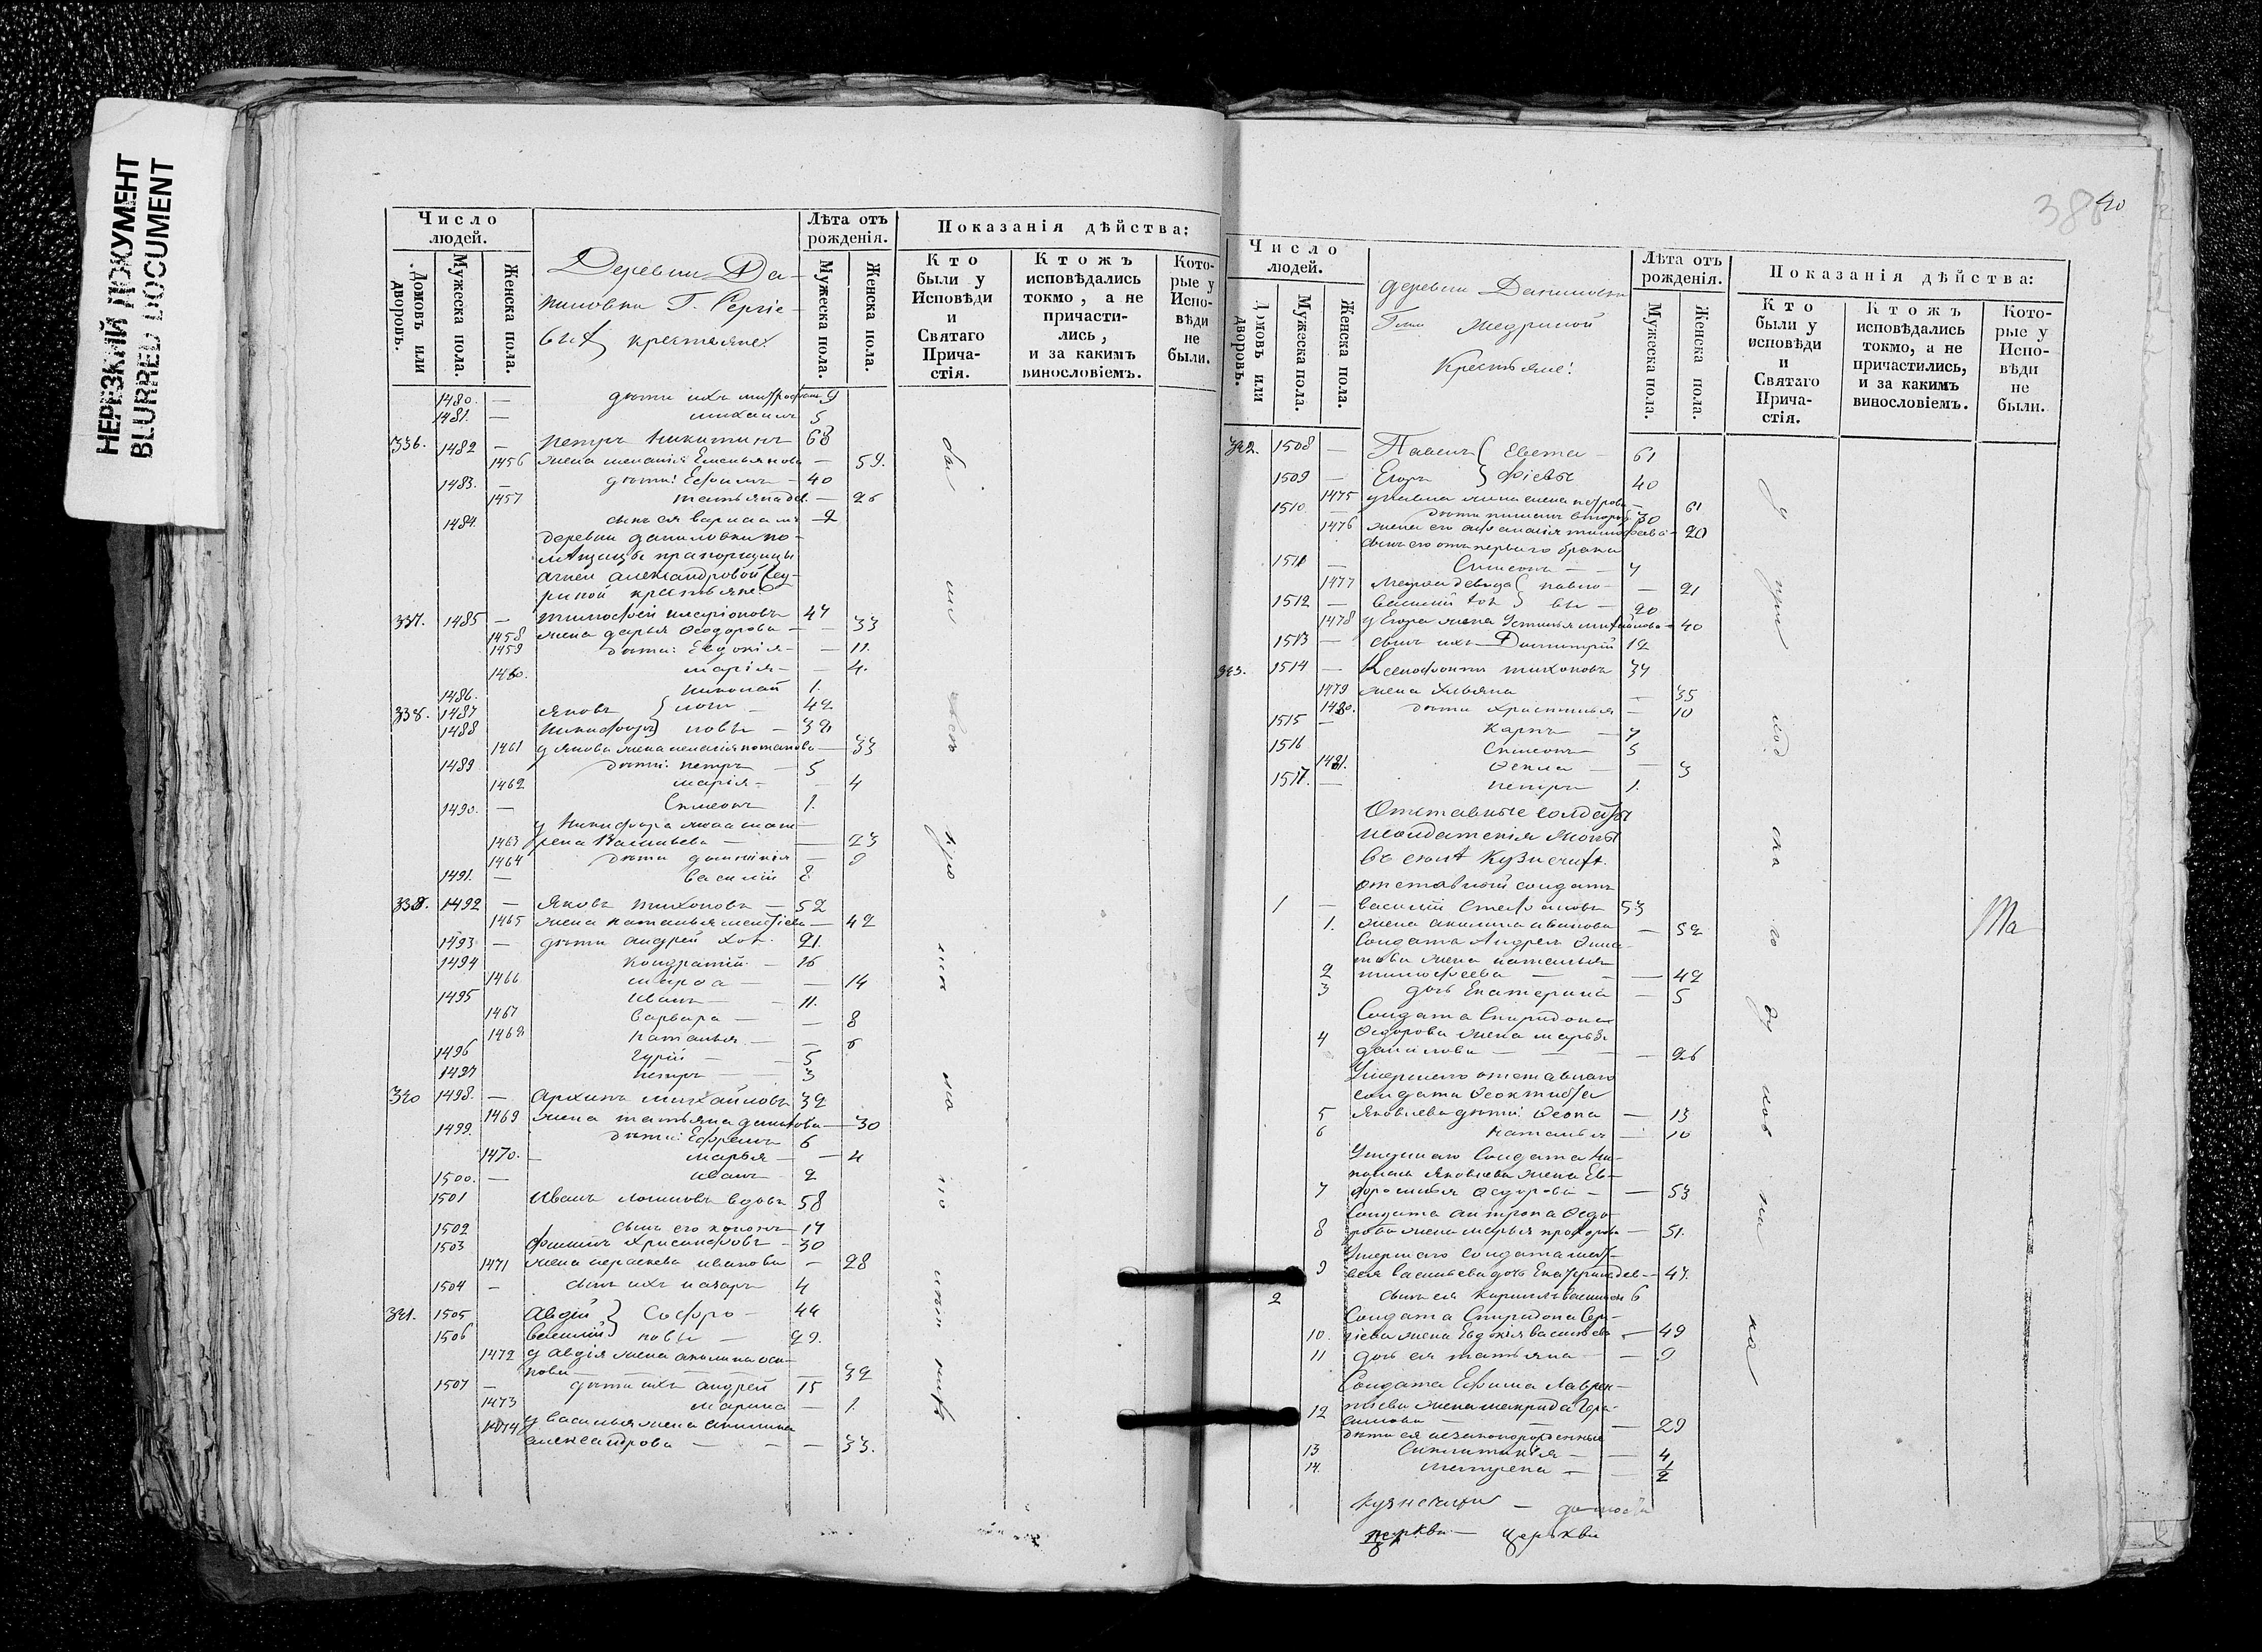 НЕРІЗКИЙ ДОКУМЕНТ
BLURRED DOCUMENT
Число людей.
Домовъ или дворовъ.
Мужеска пола.
Женска пола.
Деревни Да-
ниловки Г. Сергіе-
крестьяне
Лѣта отъ рожденія.
Мужеска пола.
Женска пола.
Показанія дѣйства:
Кто были у Исповѣди и Святаго Прича-стія.
Ктожъ исповѣдались токмо, а не причасти-лись, и за какимъ винословіемъ.
Кото-рые у Испо-вѣди не были.
1480. — дѣти ихъ Митрофанъ 9
1481. — михаилъ 5
336. 1482 — Петръ Никитинъ 68
1456 жена меланія Емельянова — 59.
1483. — дѣти: Ефимъ — 40
1457 татьяна дев. — 26
1484. сынъ ея варлаамъ — 2
деревни даниловки по-
мѣщицы прапорщицы
александровой
крестьяне
337. 1485 — тимофей иларіоновъ 47
1458 жена дарья Ѳеодорова — 33
1459 дѣти: Евдокія — 11.
1460. марія — 4.
1486. николай 1.
338. 1487 Яковъ } логи — 42
1488 никифоръ } новы — 32
1461 у якова жена меланія потапова — 33
1489 дѣти: петръ — 5
1462 марія — 4
1490. — Симеонъ 1.
у Никифора жена мат-
1463 рена Васильева — 23
1464 дѣти домникія — 9
1491. — василій 8
338. 1492 — Яковъ тихоновъ — 52
1465 жена наталья — 42
1493 — дѣти андрей хол. 21.
1494 кондратій — 16
1466 марѳа — 14
1495 Иванъ — 11.
1467 варвара — 8
1468 наталья — 6
1496 гурій — 5
1497 петръ — 3
340 1498. — Архипъ михайловъ 32
1469 жена татьяна данилова — 30
1499. дѣти: Ефремъ 6
1470. — марья — 4
1500. — иванъ 2
1501 Иванъ логиновъ вдовъ 58
1502 сынъ его кононъ — 17
1503 филипъ Хрисанфовъ — 30
1471 жена параскева иванова — 28
1504 — сынъ ихъ назаръ 4
341. 1505 Авдій } Софро — 44
1506 василій } новы — 29.
1472 у авдія жена акилина оси-
пова — 32
1507 — дѣти ихъ андрей 15
1473 марина — 1.
1474 у василья жена акилина
александрова — 33.
386 40
Число людей.
Домовъ или дворовъ.
Мужеска пола.
Женска пола.
деревни Даниловки
Г-жи
Крестьяне:
Лѣта отъ рожденія.
Мужеска пола.
Женска пола.
Показанія дѣйства:
Кто были у исповѣди и Святаго Прича-стія.
Ктожъ исповѣдались токмо, а не причастились, и за какимъ винословіемъ.
Кото-рые у Испо-вѣди не были.
342. 1508 — Павелъ } Евста — 61
1509 — Егоръ } фіевы 40
1475 у павла жена елена петрова — 61
1510 — дѣти пименъ вторый 30
1476 жена его аѳанасія тимофеева — 20
сынъ его отъ перваго брака
1511 — Симеонъ — 7
1477 Марѳа девица } павло — 21
1512 — василій хол } вы — 20
1478 у Егора жена Устинья михайлова — 40
1513 — сынъ ихъ Димитрій 12
343. 1514 — Ксенофонтъ тихоновъ 34
1479 жена Ульяна — 35
1480. дѣти Христинья — 10
1515 — Карпъ — 7
1516 Симеонъ — 5
1481. Ѳекла — 3
1517. — петръ 1.
Отставные солдаты
и солдатскія жоны
въ селѣ Кузнечих.
отставной солдатъ
1 — василій Степановъ 53
1. жена акилина иванова — 52
Солдата Андрея
това жена наталья
2 тимофеева — 42
3 дочь Екатерина — 5
Солдата Спиридона
4 Ѳедорова жена марья
данилова — 26
Умершего отставнаго
солдата Ѳеоктиста
5 Яковлева дѣти: Ѳеона — 13
6 наталья — 10
Умершаго Солдата Ни-
колая Яковлева жена Ев-
7 фросинья Ѳедорова — 53
Солдата антропа Ѳедо-
8 рова жена марья прохорова — 51.
Умершаго солдата мат-
9 вея васильева дочь Екатерина дев — 47.
2 сынъ ея Кириллъ васильевъ 6
Солдата Спиридона Сер-
10. гіева жена Евдокія васильева — 49
11 дочь ея татьяна — 9
Солдата Ефима Лаврен-
12 тіева жена макрида Гера-
симова — 29
дѣти ея незаконорожденные
13 Синклитикія — 4
14. матрена — 1/2
церкви — церькви